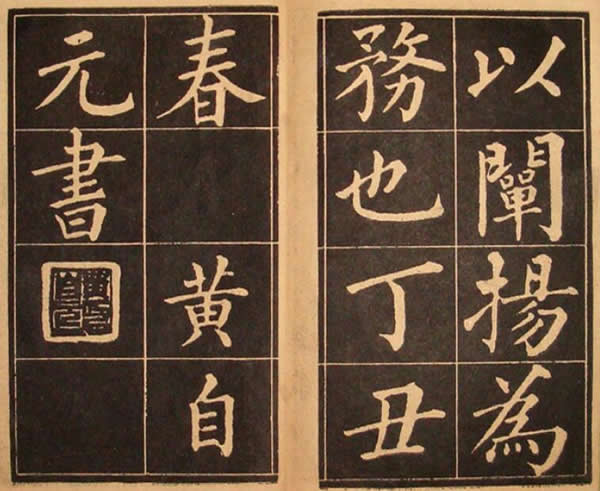 以闡揚為
務也丁丑
春 黄自
元書